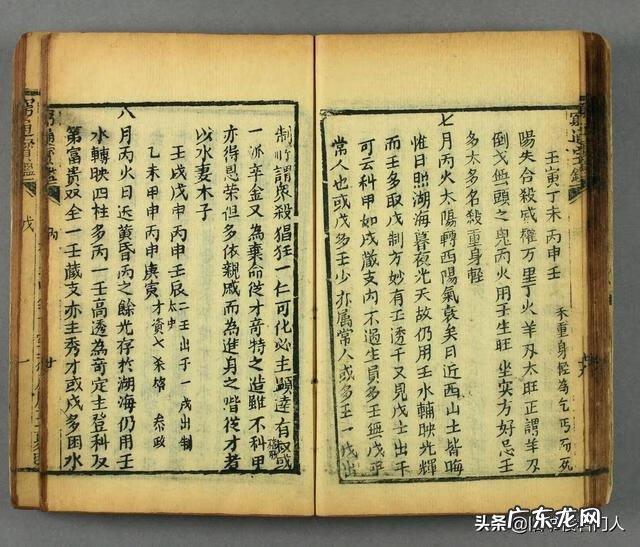 壬寅丁未 丙申壬
禾重身輕為乞丐而死
陽失合殺威權万里丁火羊刃太旺正謂羊刃
倒戈無頭之鬼丙火用壬生旺 坐实方好忌壬
多太多名殺重身軽
七月丙火太陽轉西陽氣衰矣日近西山土皆晦
惟日照湖海暮夜光天故仍用壬水輔映光輝
而壬多取戊制方妙有壬透千又見戊士出干
可云科甲如戊蔵支內不過生員多壬無戊平
常人也或戊多壬少亦属常人或多壬一戊出
制所謂眾殺猖狂一仁可化必主顯達有 或
一派辛金又為棄命從才奇特之造雖不科甲
亦得恩荣但多依親戚而為進身之階從才者
以水妻木子
壬戌戊申丙申壬辰 二壬出干一戊出制
太史
乙未甲申丙申庚寅 才資七杀格 叅政
八月丙火日近黄昏丙之餘光存於湖海仍用壬
水輔映四柱多丙一壬高透為奇定主登科及
第富貴双全一壬蔵支亦主秀才或戊多困水
窮通寶鑑
头条
广东龙网